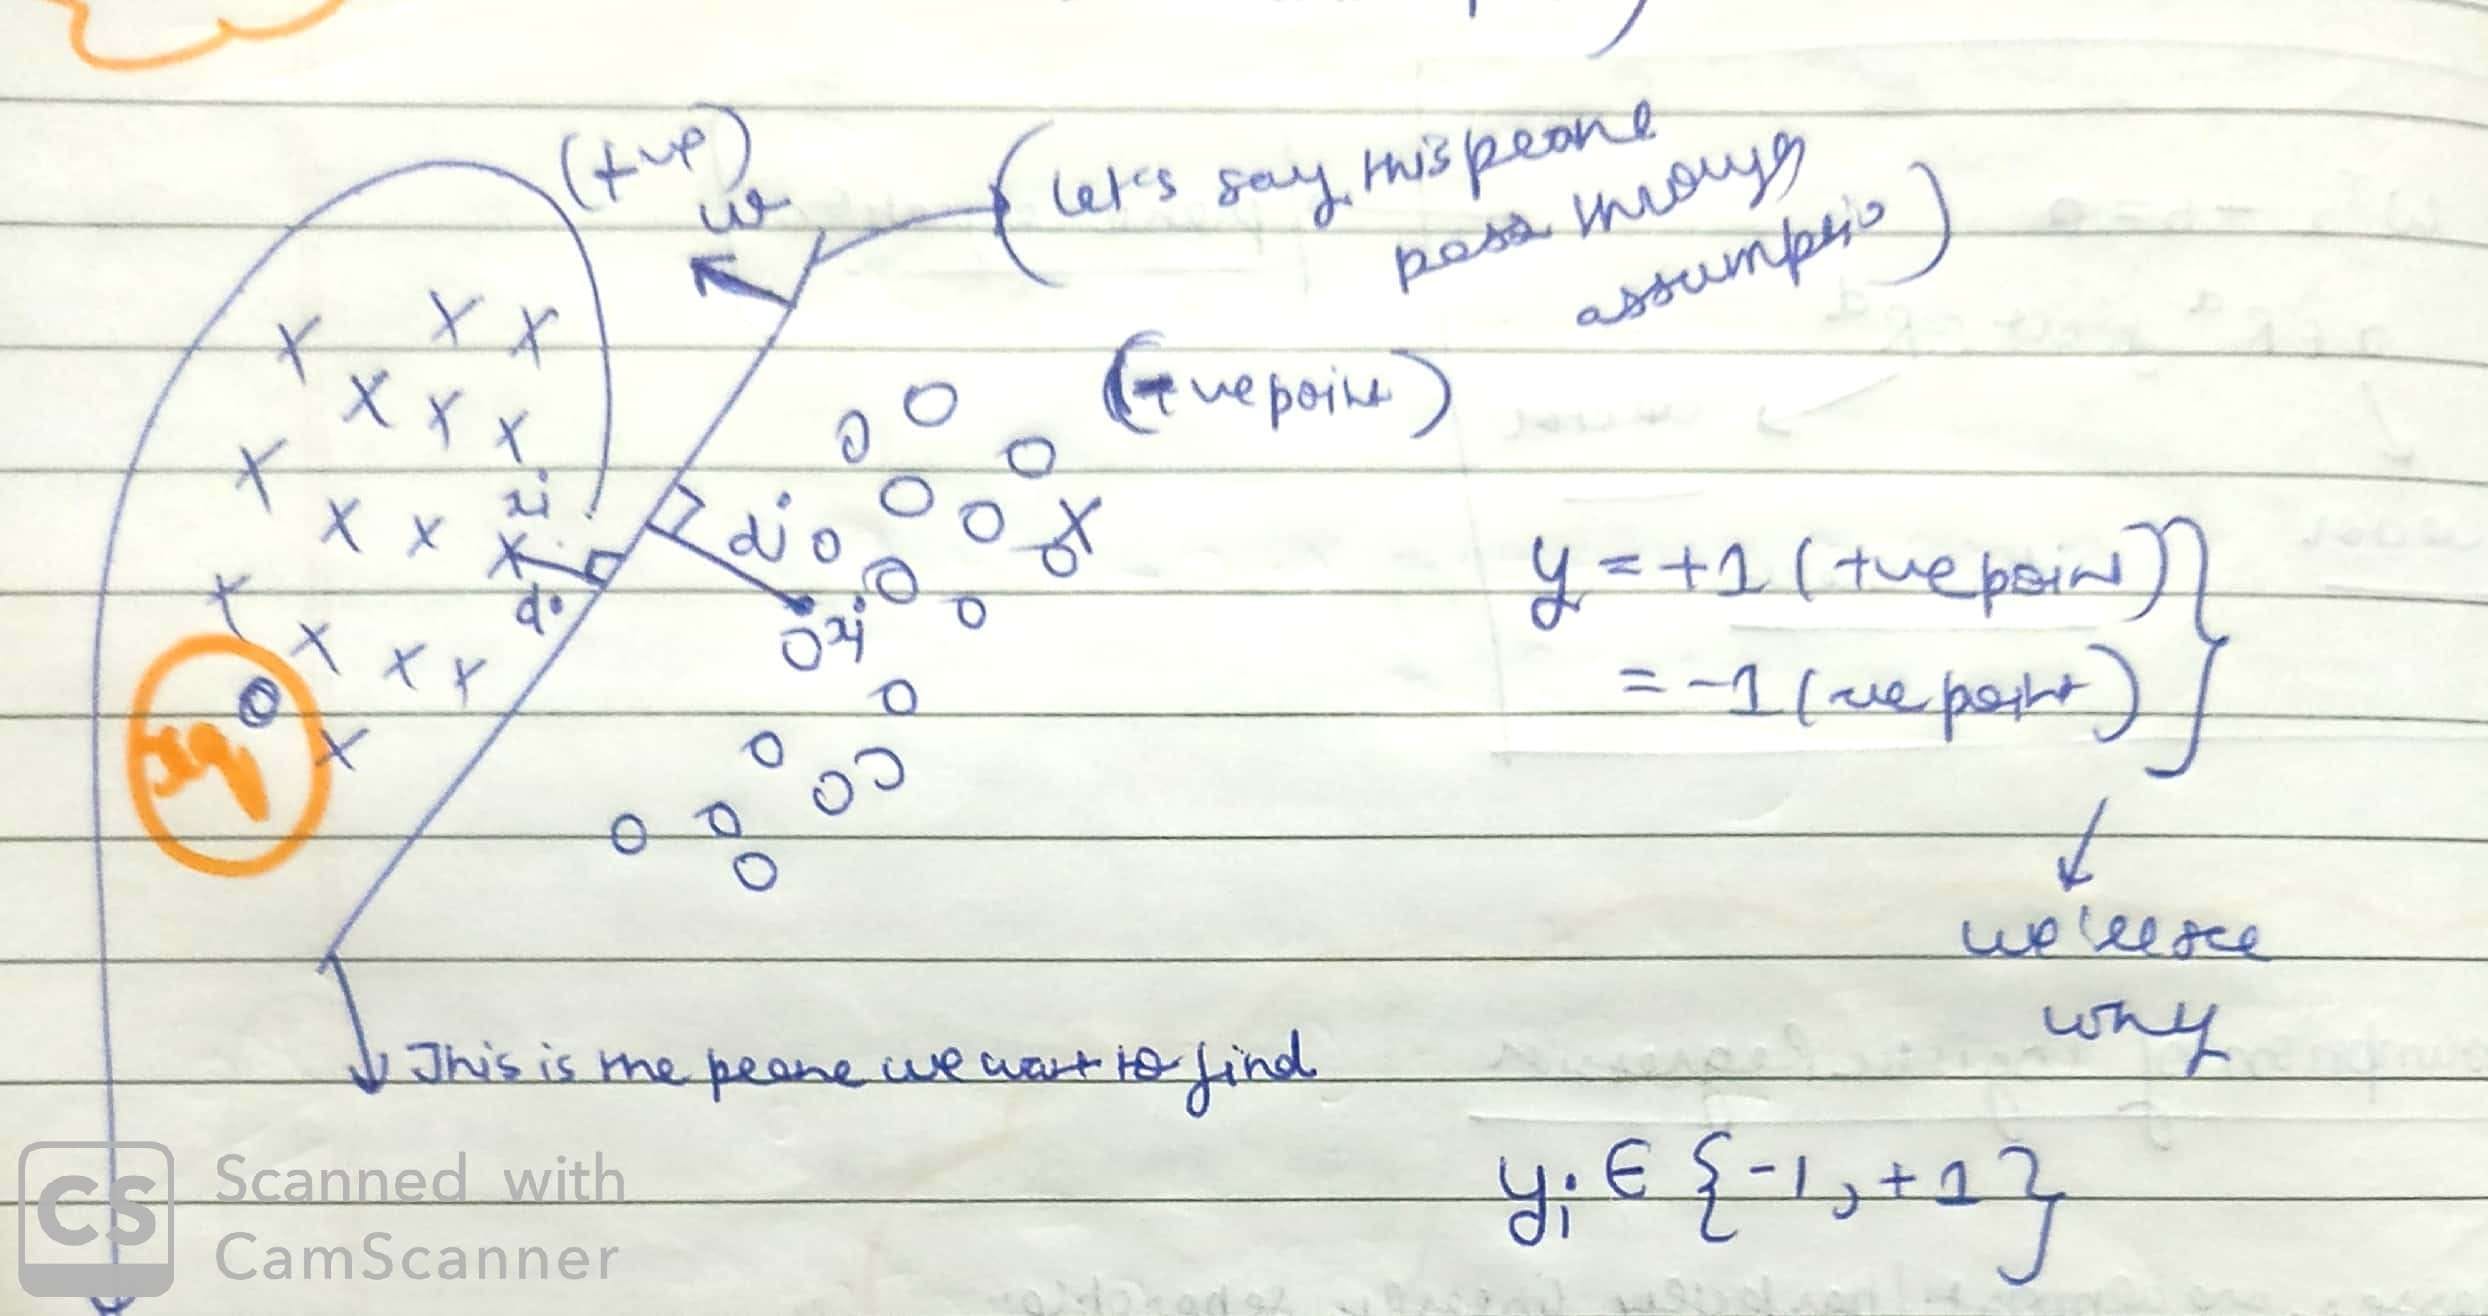 (+ve)
w
(let's say this plane
pass through
assumptio)
(-ve point)
xi
di
dj
xj
xq
y = +1 (+ve point)
= -1 (-ve point)
we'll see
why
This is the plane we want to find
yi ∈ {-1, +1}
CS
Scanned with
CamScanner